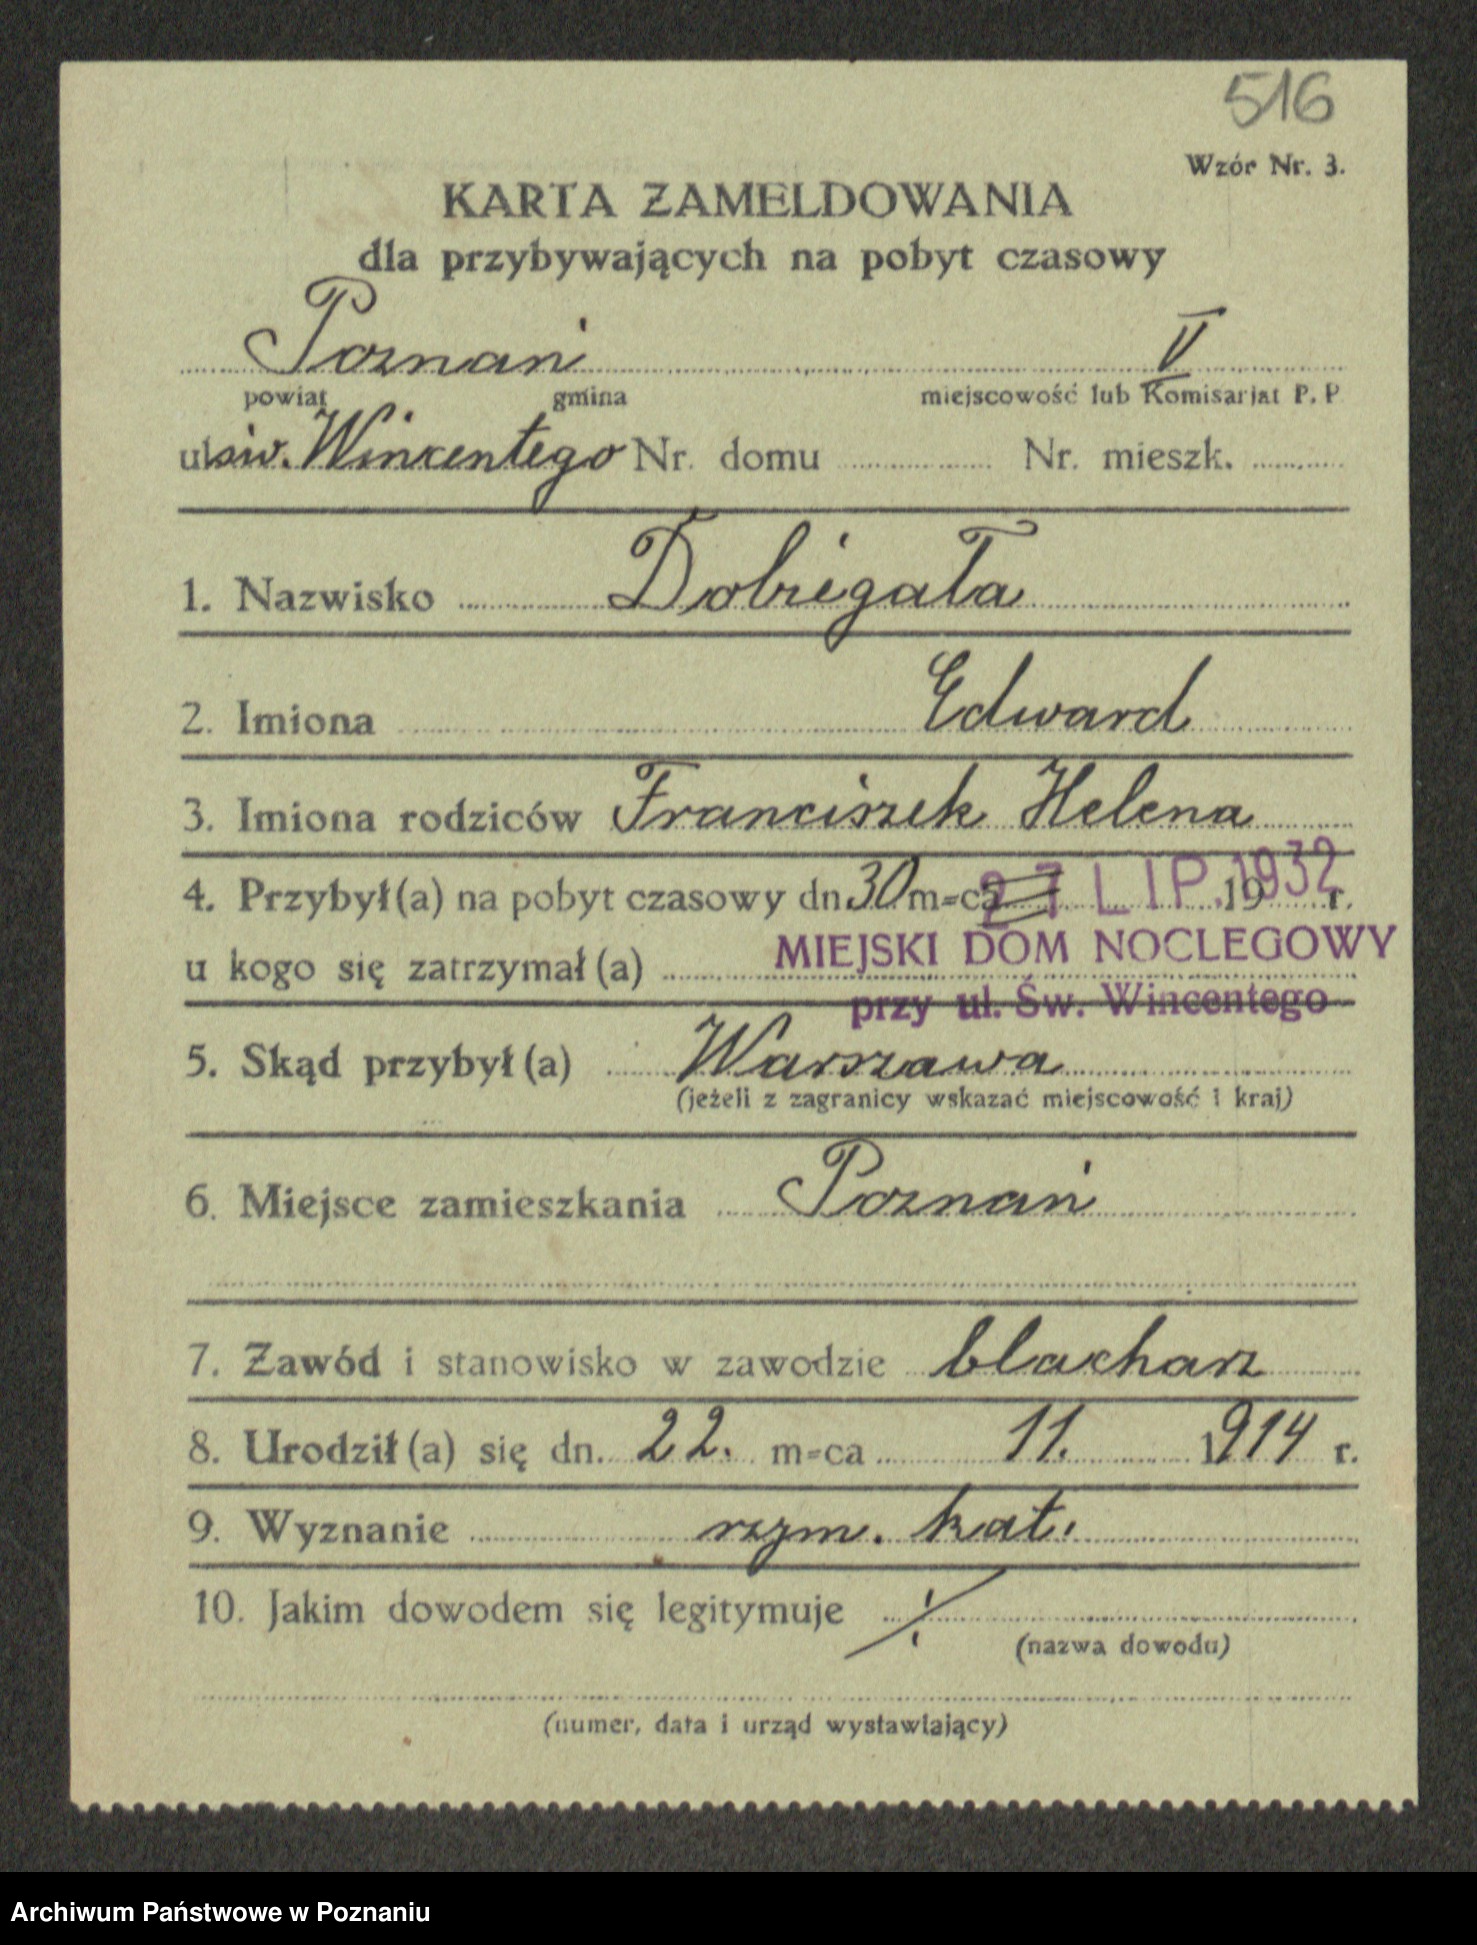 516
Wzór Nr. 3.
KARTA ZAMELDOWANIA
dla przybywających na pobyt czasowy
Poznań V
powiat gmina miejscowość lub Komisarjat P. P
ul. św. Wincentego Nr. domu Nr. mieszk.
1. Nazwisko Dobrigała
2. Imiona Edward
3. Imiona rodziców Franciszek Helena
4. Przybył(a) na pobyt czasowy dn. 30 m-ca 27 LIP. 1932 19 r.
u kogo się zatrzymał(a) MIEJSKI DOM NOCLEGOWY
przy ul. Św. Wincentego
5. Skąd przybył(a) Warszawa
(jeżeli z zagranicy wskazać miejscowość i kraj)
6. Miejsce zamieszkania Poznań
7. Zawód i stanowisko w zawodzie blacharz
8. Urodził(a) się dn. 22. m-ca 11. 1914 r.
9. Wyznanie rzym. kat.
10. Jakim dowodem się legitymuje ./.
(nazwa dowodu)
(numer, data i urząd wystawiający)
Archiwum Państwowe w Poznaniu